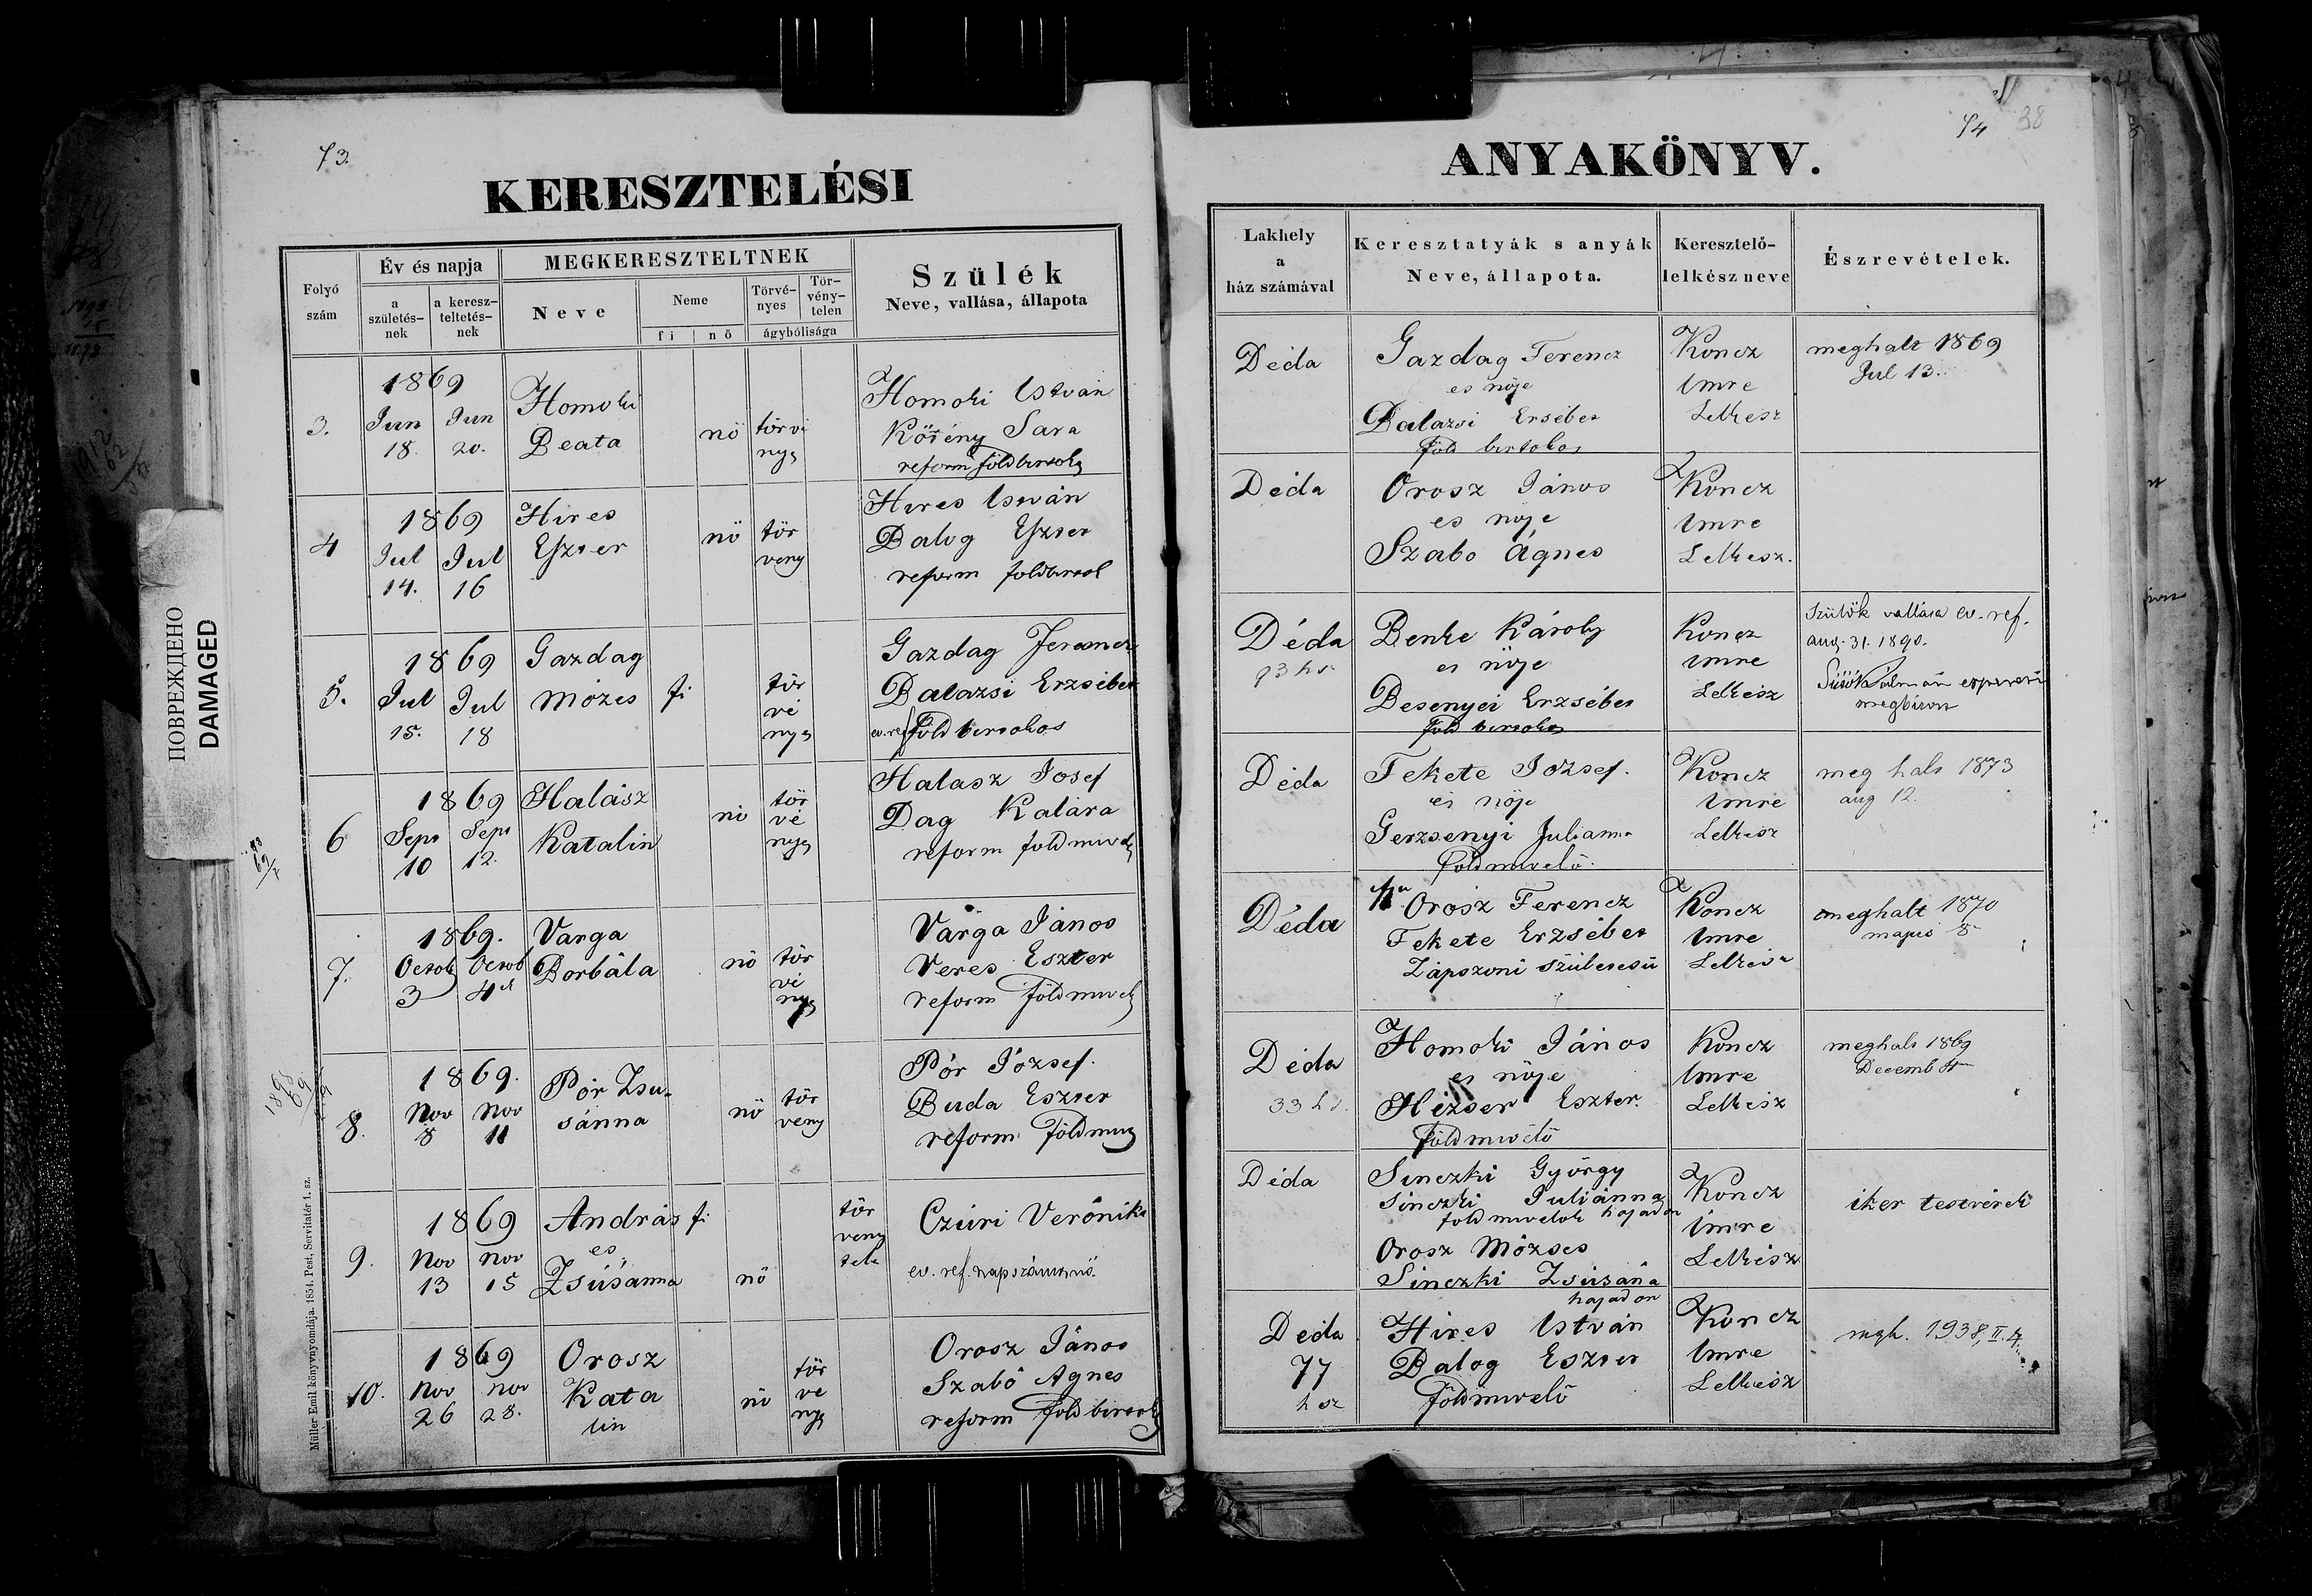 73.
KERESZTELÉSI
Folyó
szám
Év és napja
a
születés-
nek
a keresz-
teltetés-
nek
MEGKERESZTELTNEK
Neve
Neme
fi
nö
Törvé-
nyes
Tör-
vény-
telen
ágybólisága
Szülék
Neve, vallása, állapota
3.
1869
Jun
18.
Jun
20.
Homoki
Beata
nö
törvé
nyes
Homoki István
Sara
reform földbirtokos
4
1869
Jul
14.
Jul
16
Hires
Eszter
nö
tör
veny
Hires István
Balog Eszter
reform foldbirtok
5.
1869
Jul
15.
Jul
18
Gazdag
Mózes
fi
tör
vé
nyes
Gazdag Ferencz
Balazsi Erzsébet
ev. ref. föld birtokos
6
1869
Sept
10
Sept
12.
Halász
Katalin
nö
tör
vé
nyes
Halasz Josef
Dag Kalára
reform foldmivel
7.
1869.
Octob
3
Octob
4
Varga
Borbála
nö
tör
vé
nyes
Varga János
Veres Eszter
reform földmivel
8.
1869.
Nov
8
Nov
11
Pór Zsu-
sánna
nö
tör
veny
Pór József.
Buda Eszter
reform földmiv
9.
1869
Nov
13
Nov
15
András
es
Zsúsanna
fi
nö
tör
veny
tele
Czúri Verónika
ev. ref. napszámosnö.
10.
1869
Nov
26
Nov
28.
Orosz
Kata
lin
nö
tör
ve
nyes
Orosz János
Szabó Agnes
reform földbirtok
Müller Emil könyvnyomdája. 1854. Pest, Servitatér 1. sz.
ПОВРЕЖДЕНО
DAMAGED
74
38
ANYAKÖNYV.
Lakhely
a
ház számával
Keresztatyák s anyák
Neve, állapota.
Keresztelő-
lelkész neve
Észrevételek.
Déda
Gazdag Ferencz
es nöje
Balazsi Ersébet
föld birtokos
Koncz
Imre
Lelkesz
meghalt 1869
Jul 13.
Déda
Orosz János
es nöje
Szabo Ágnes
Koncz
Imre
Lelkesz.
Déda
93 hsz
Benke Károly
es nöje
Besenyei Erzsébet
föld birtokos
Koncz
Imre
Lelkész
Szülők vallása ev. ref.
aug. 31. 1890.
Sütő Kálmán esperesi
megbizott
Déda
Fekete József.
es nöje
Gerzsenyi Julianna
földmivelö.
Koncz
Imre
Lelkész
meg halt 1873
aug 12.
Déda
Orosz Ferencz
Fekete Erzsébet
Zápszoni születésü
Koncz
Imre
Lelkész
meghalt 1870
majus 8
Déda
33 hs.
Homoki János
es nöje
Hizser Eszter.
földmivelö
Koncz
Imre
Lelkész
meghalt 1869
Decemb
Déda
Sinczki György
Sinczki Juliánna
foldmivelok hajadon
Orosz Mózses
Sinczki Zsúsána
hajadon
Koncz
Imre
Lelkész
iker testvérek
Déda
77
hsz
Hires István
Balog Eszter
földmivelö
Koncz
Imre
Lelkész
mgh. 1938. II. 4.